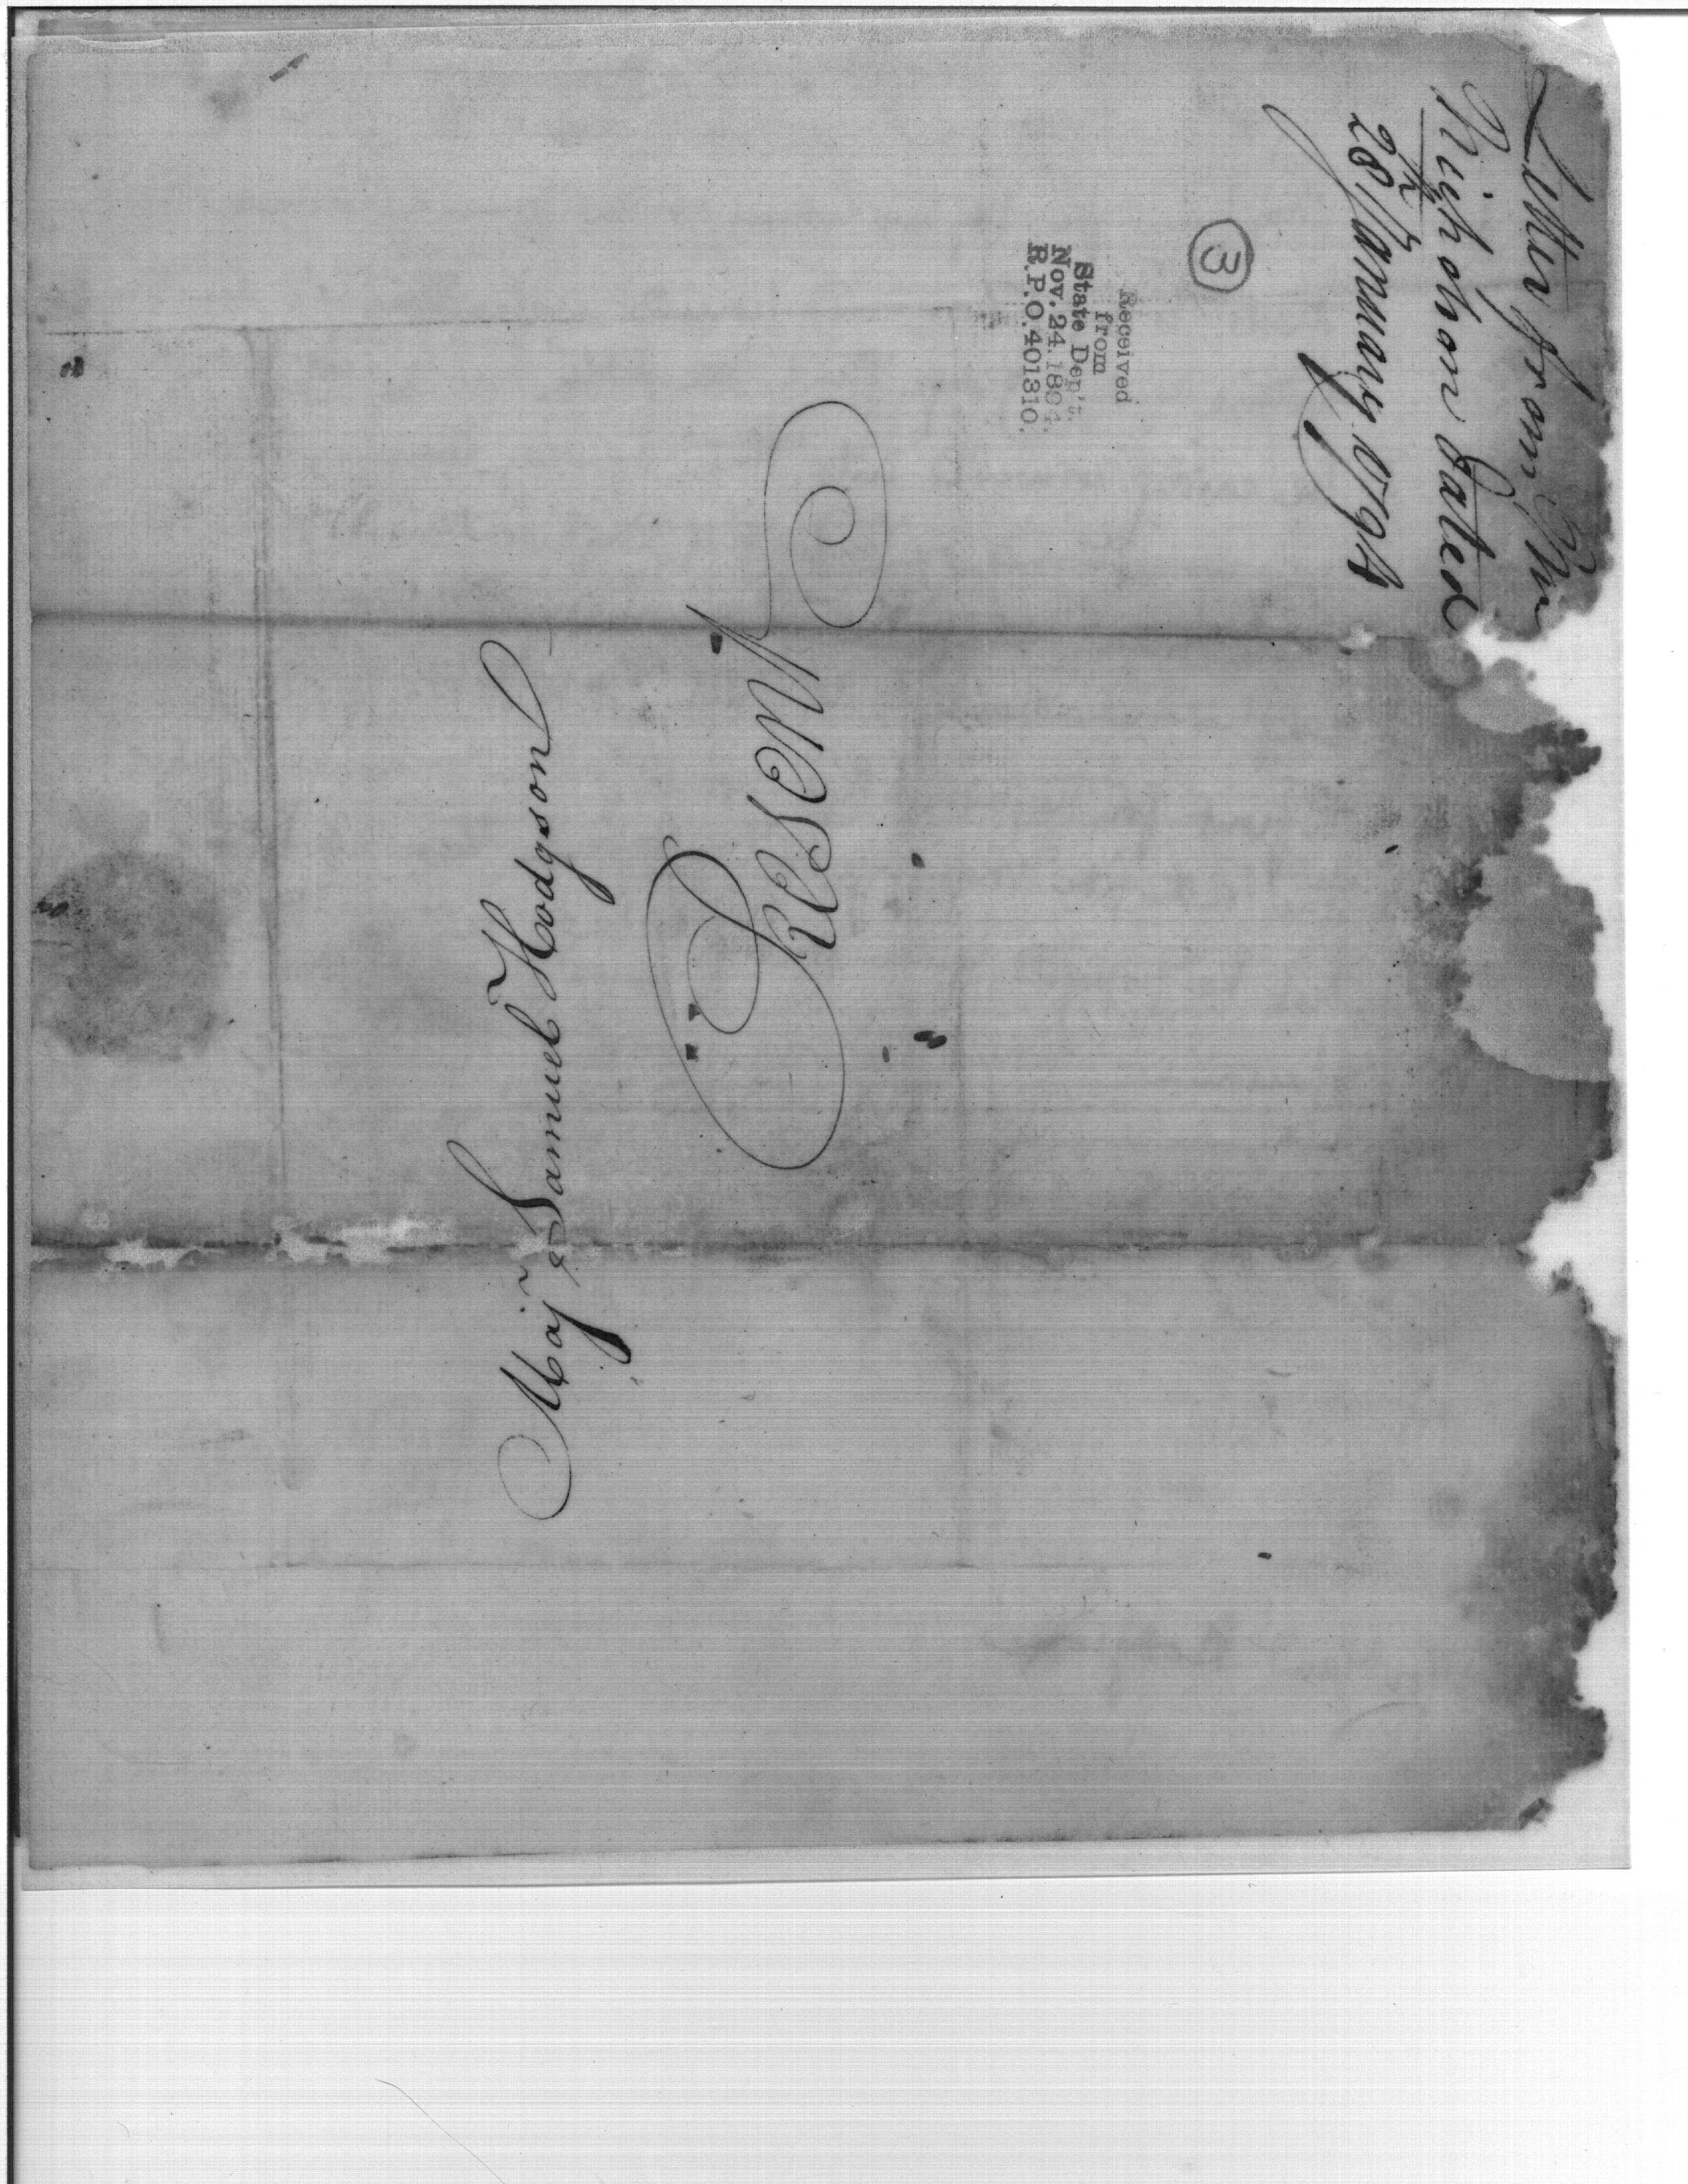 Letter from Wm
Nicholson Dated
28th January 1794
3
Received
from
State Dep't.
Nov. 24. 1894.
R.P.O. 401310.
Maj. Samuel Hodgson
Present